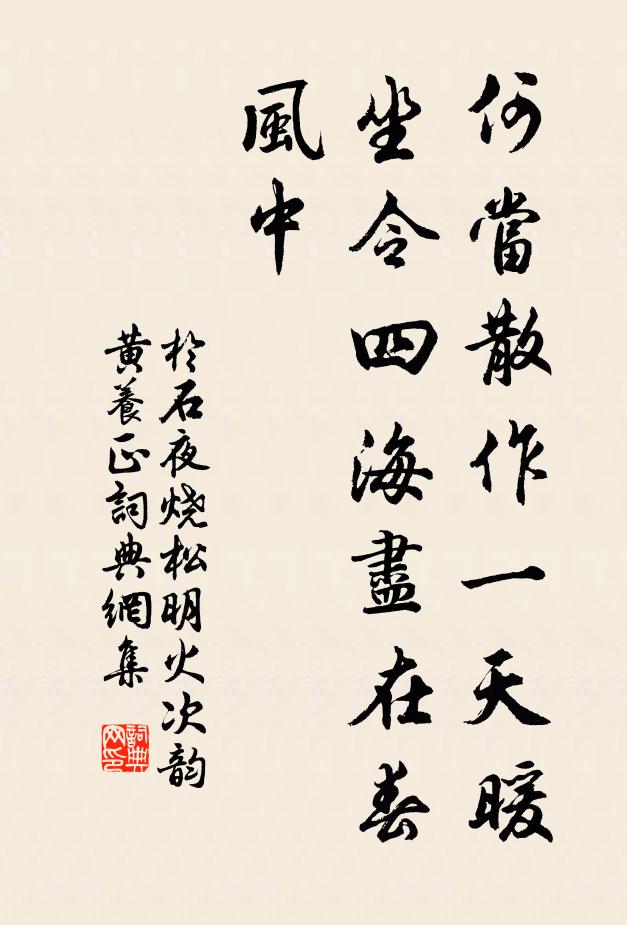 何當散作一天暖
坐令四海盡在春
風中
於石夜烧松明火次韵
黄養正詞典網集
詞典
网印